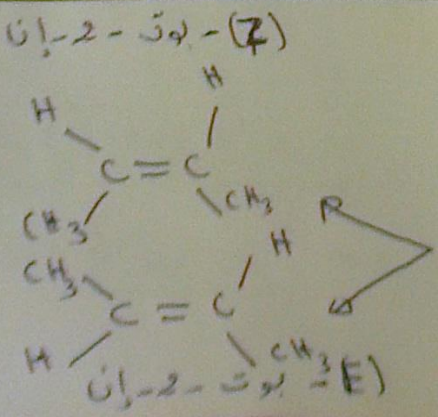 (Z) - بوت - 2 - إن
H H
C = C
CH3 CH3
CH3 H
C = C
H CH3
(E - بوت - 2 - إن